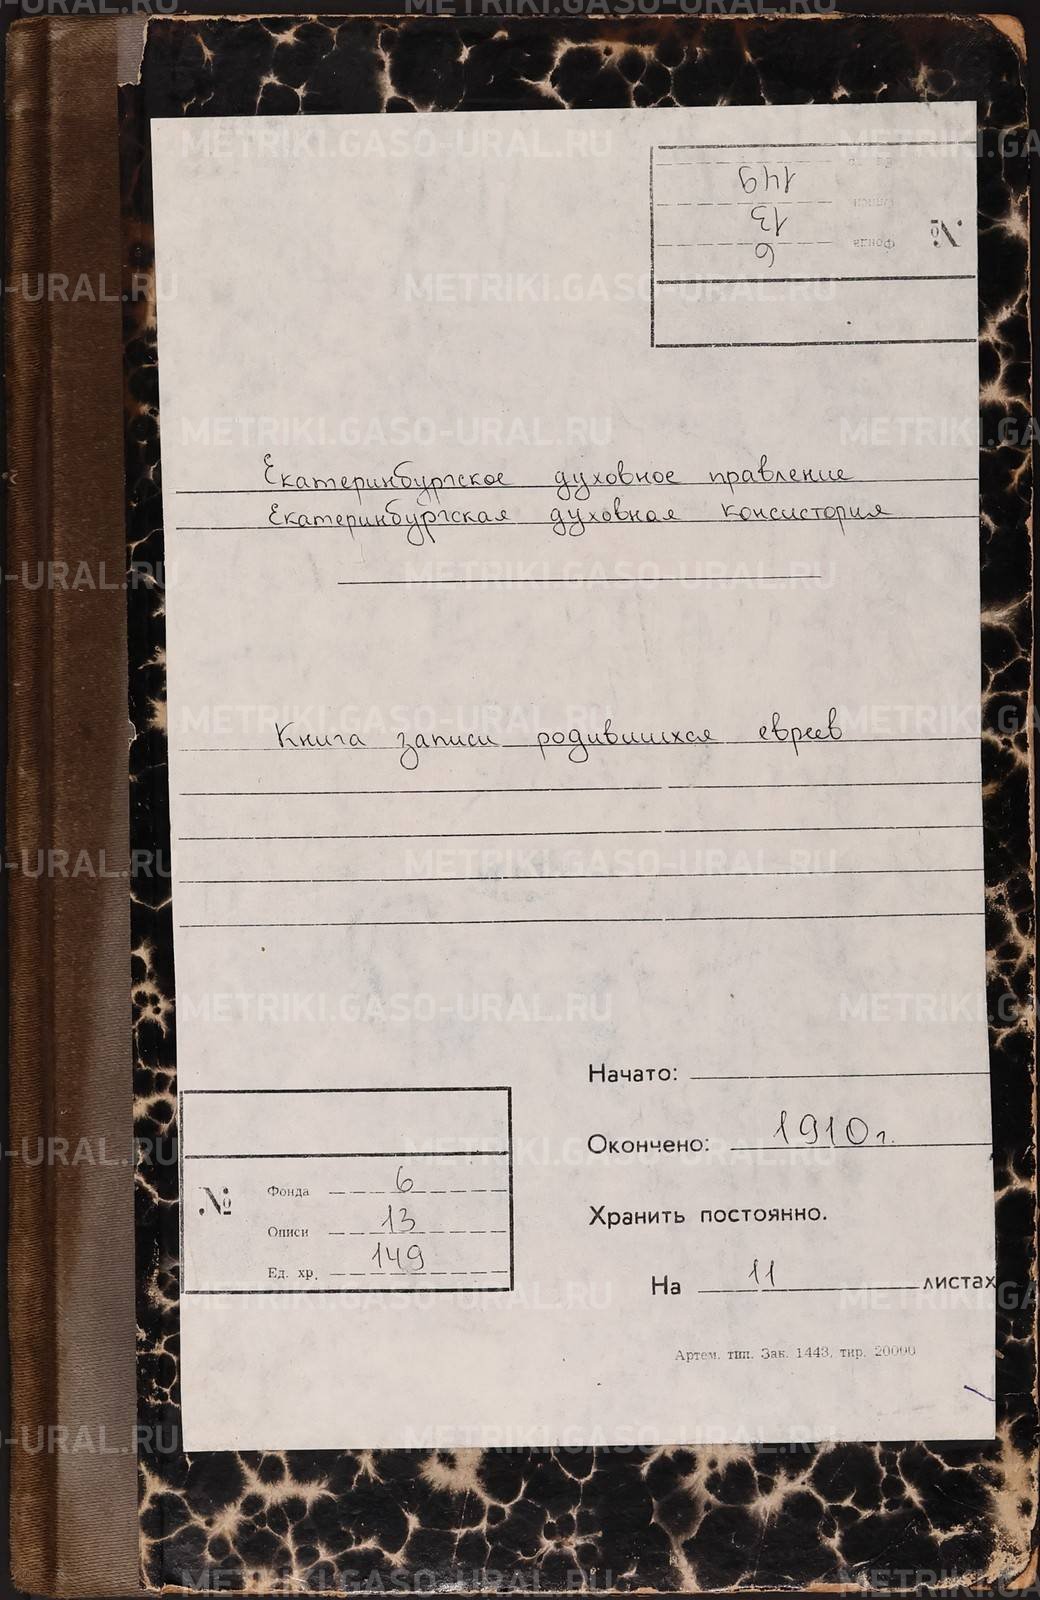 №
Фонда 6
Описи 13
149
Екатеринбургское духовное правление
Екатеринбургская духовная консистория
Книга записи родившихся евреев
Начато:
Окончено: 1910 г.
Хранить постоянно.
На 11 листах
№
Фонда 6
Описи 13
Ед. хр. 149
Артем. тип. Зак. 1443, тир. 20000
METRIKI.GASO-URAL.RU